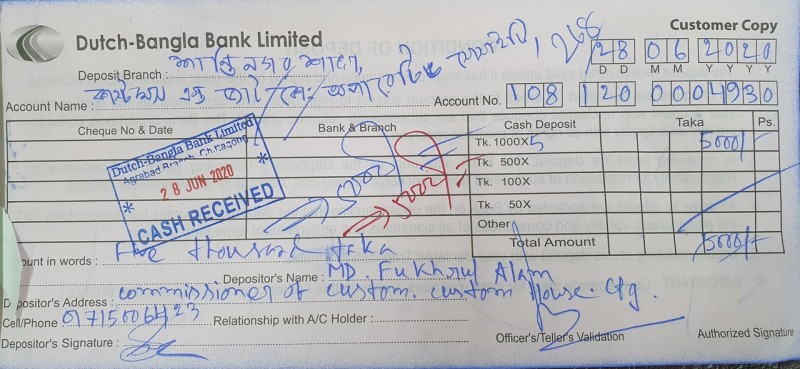 Customer Copy
Dutch-Bangla Bank Limited
28 06 2020
D D M M Y Y Y Y
Deposit Branch : শান্তিনগর শাখা,
Account Name : কাস্টমস এন্ড
Account No. 108 120 0004930
Cheque No & Date Bank & Branch Cash Deposit Taka Ps.
Tk. 1000X5 5000/
Tk. 500X
Tk. 100X
Tk. 50X
Other
Total Amount 5000/-
Dutch-Bangla Bank Limited
Agrabad Branch, Chittagong
28 JUN 2020
CASH RECEIVED
5000/
5000/
ount in words : Five thousand taka
Depositor's Name : MD. Fukhrul Alam
D positor's Address : commissioner of custom. custom House ctg.
Cell/Phone : Relationship with A/C Holder :
Depositor's Signature :
Officer's/Teller's Validation
Authorized Signature